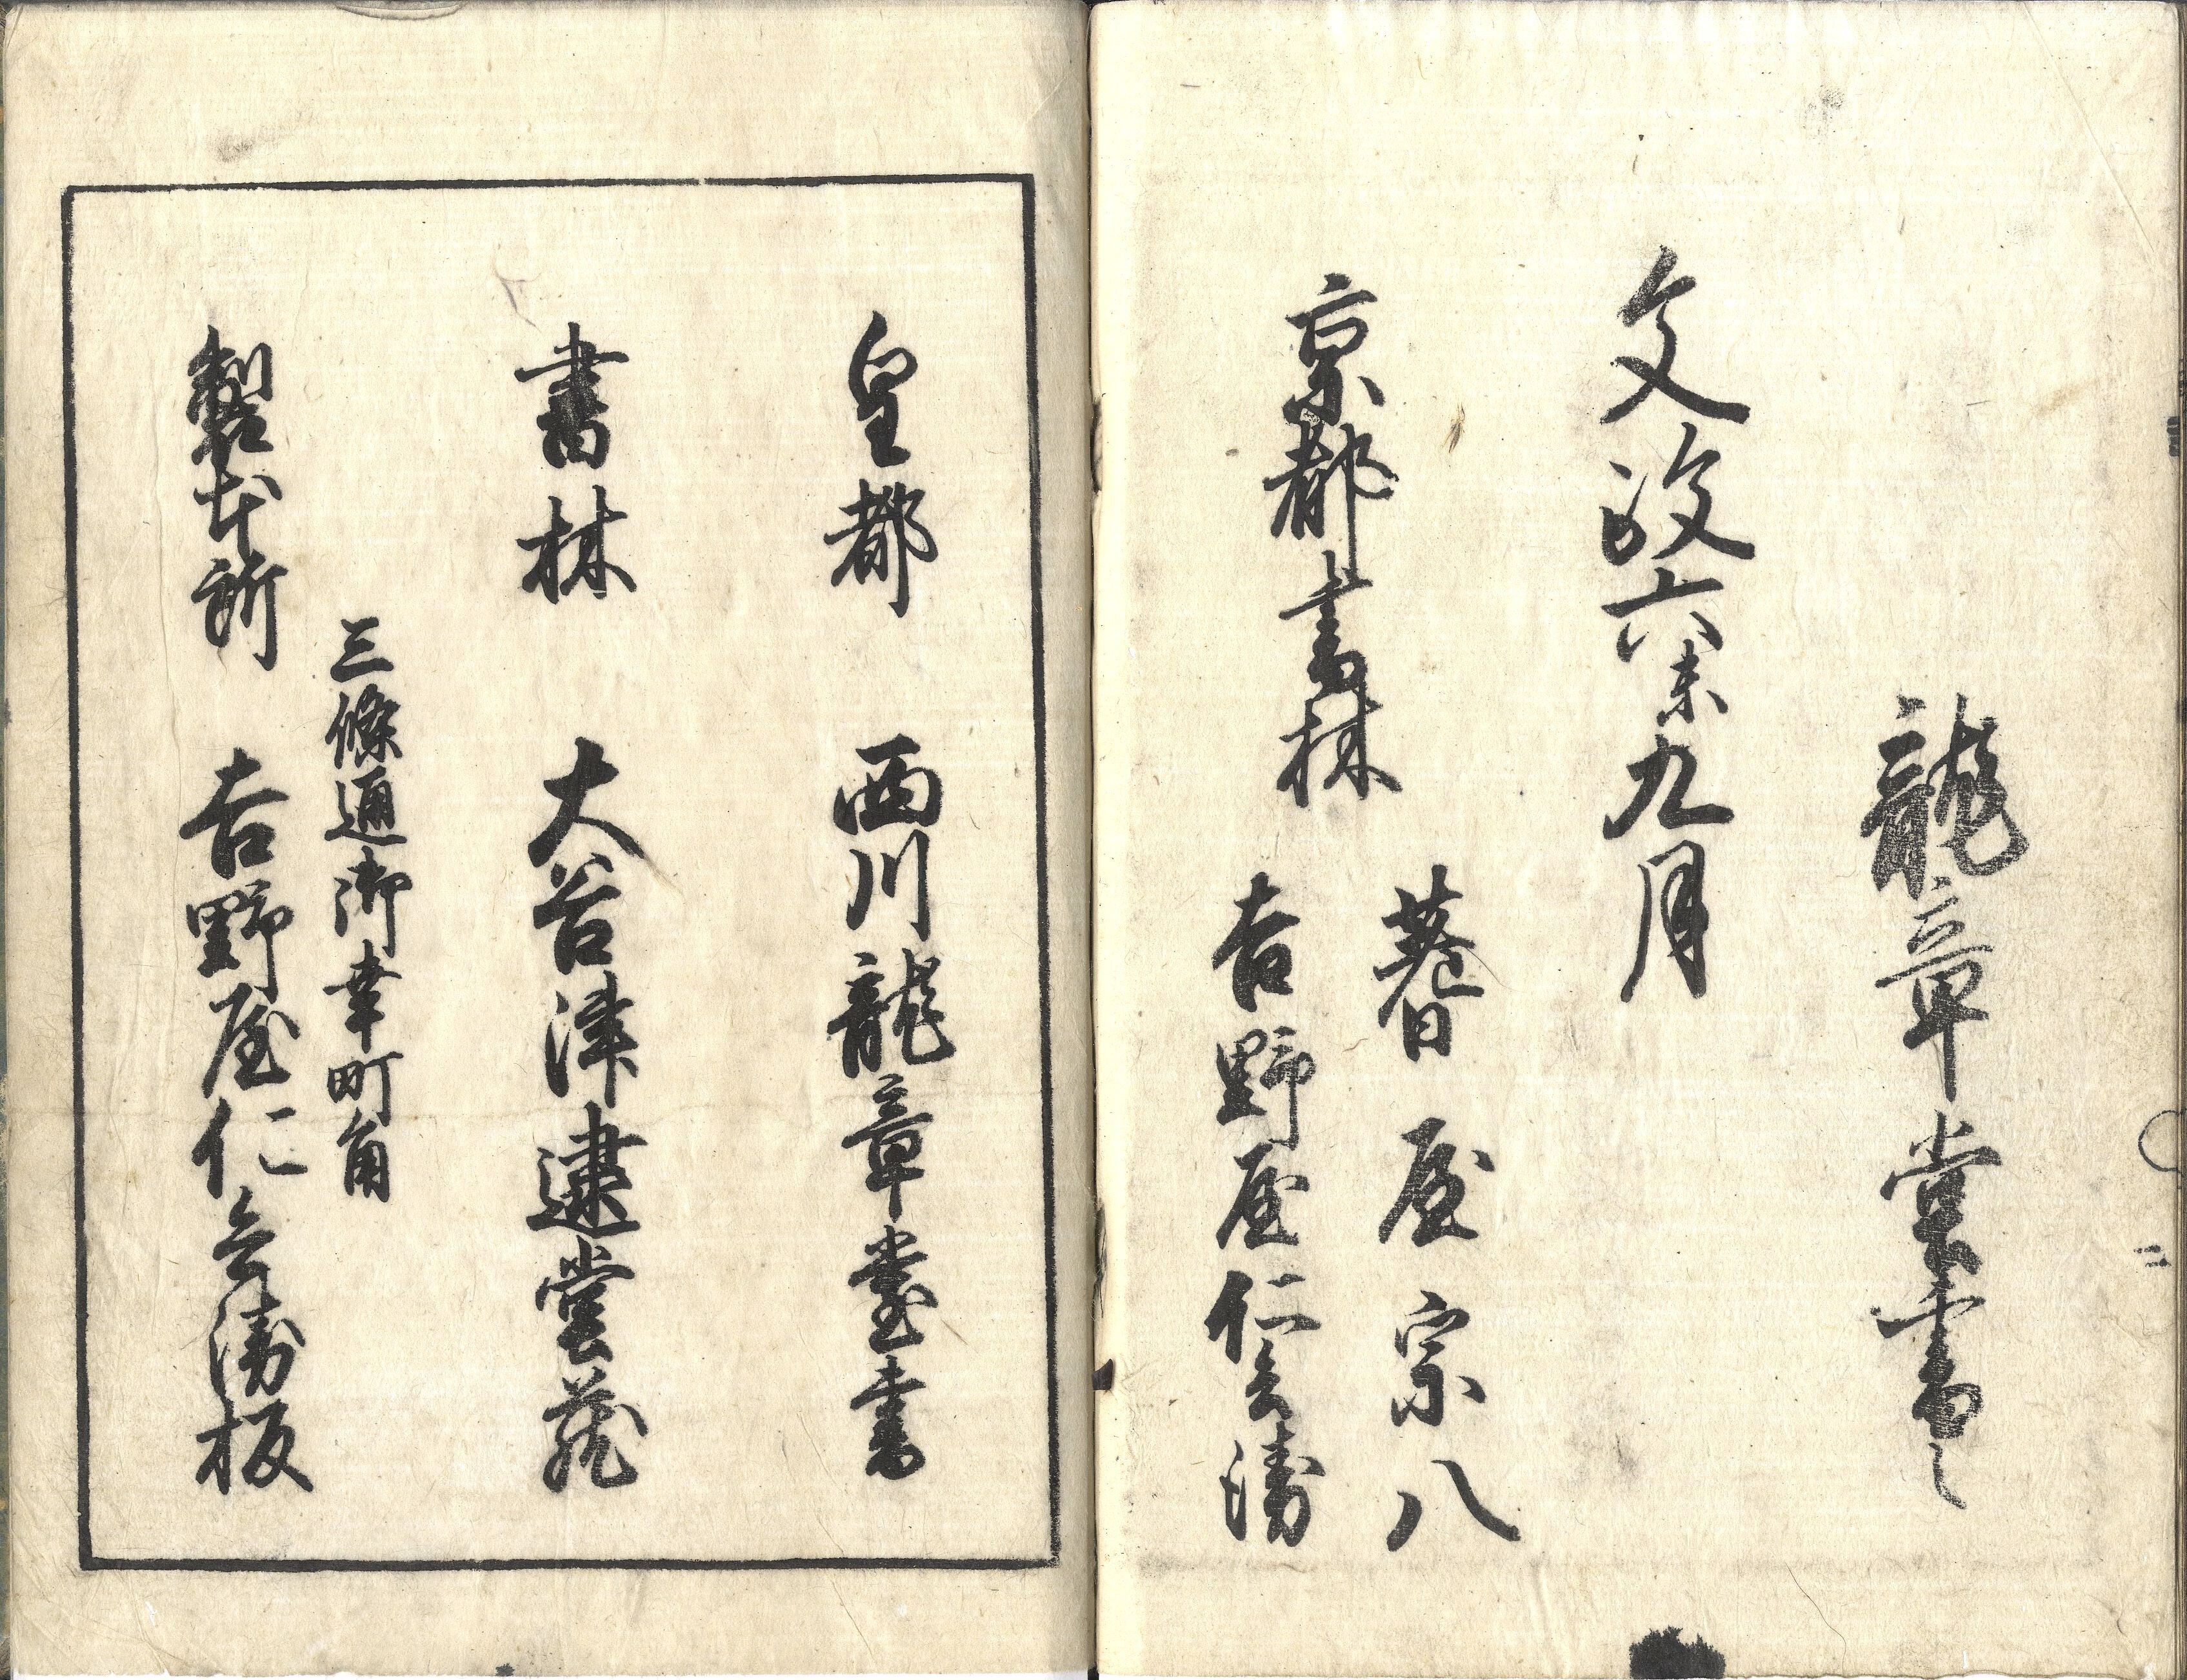 龍章堂書之
文政六未九月
京都書林
蓍屋宗八
吉野屋仁兵衛
皇都 西川龍章堂書
書林 大谷津逮堂蔵
三條通御幸町角
製本所 吉野屋仁兵衛板